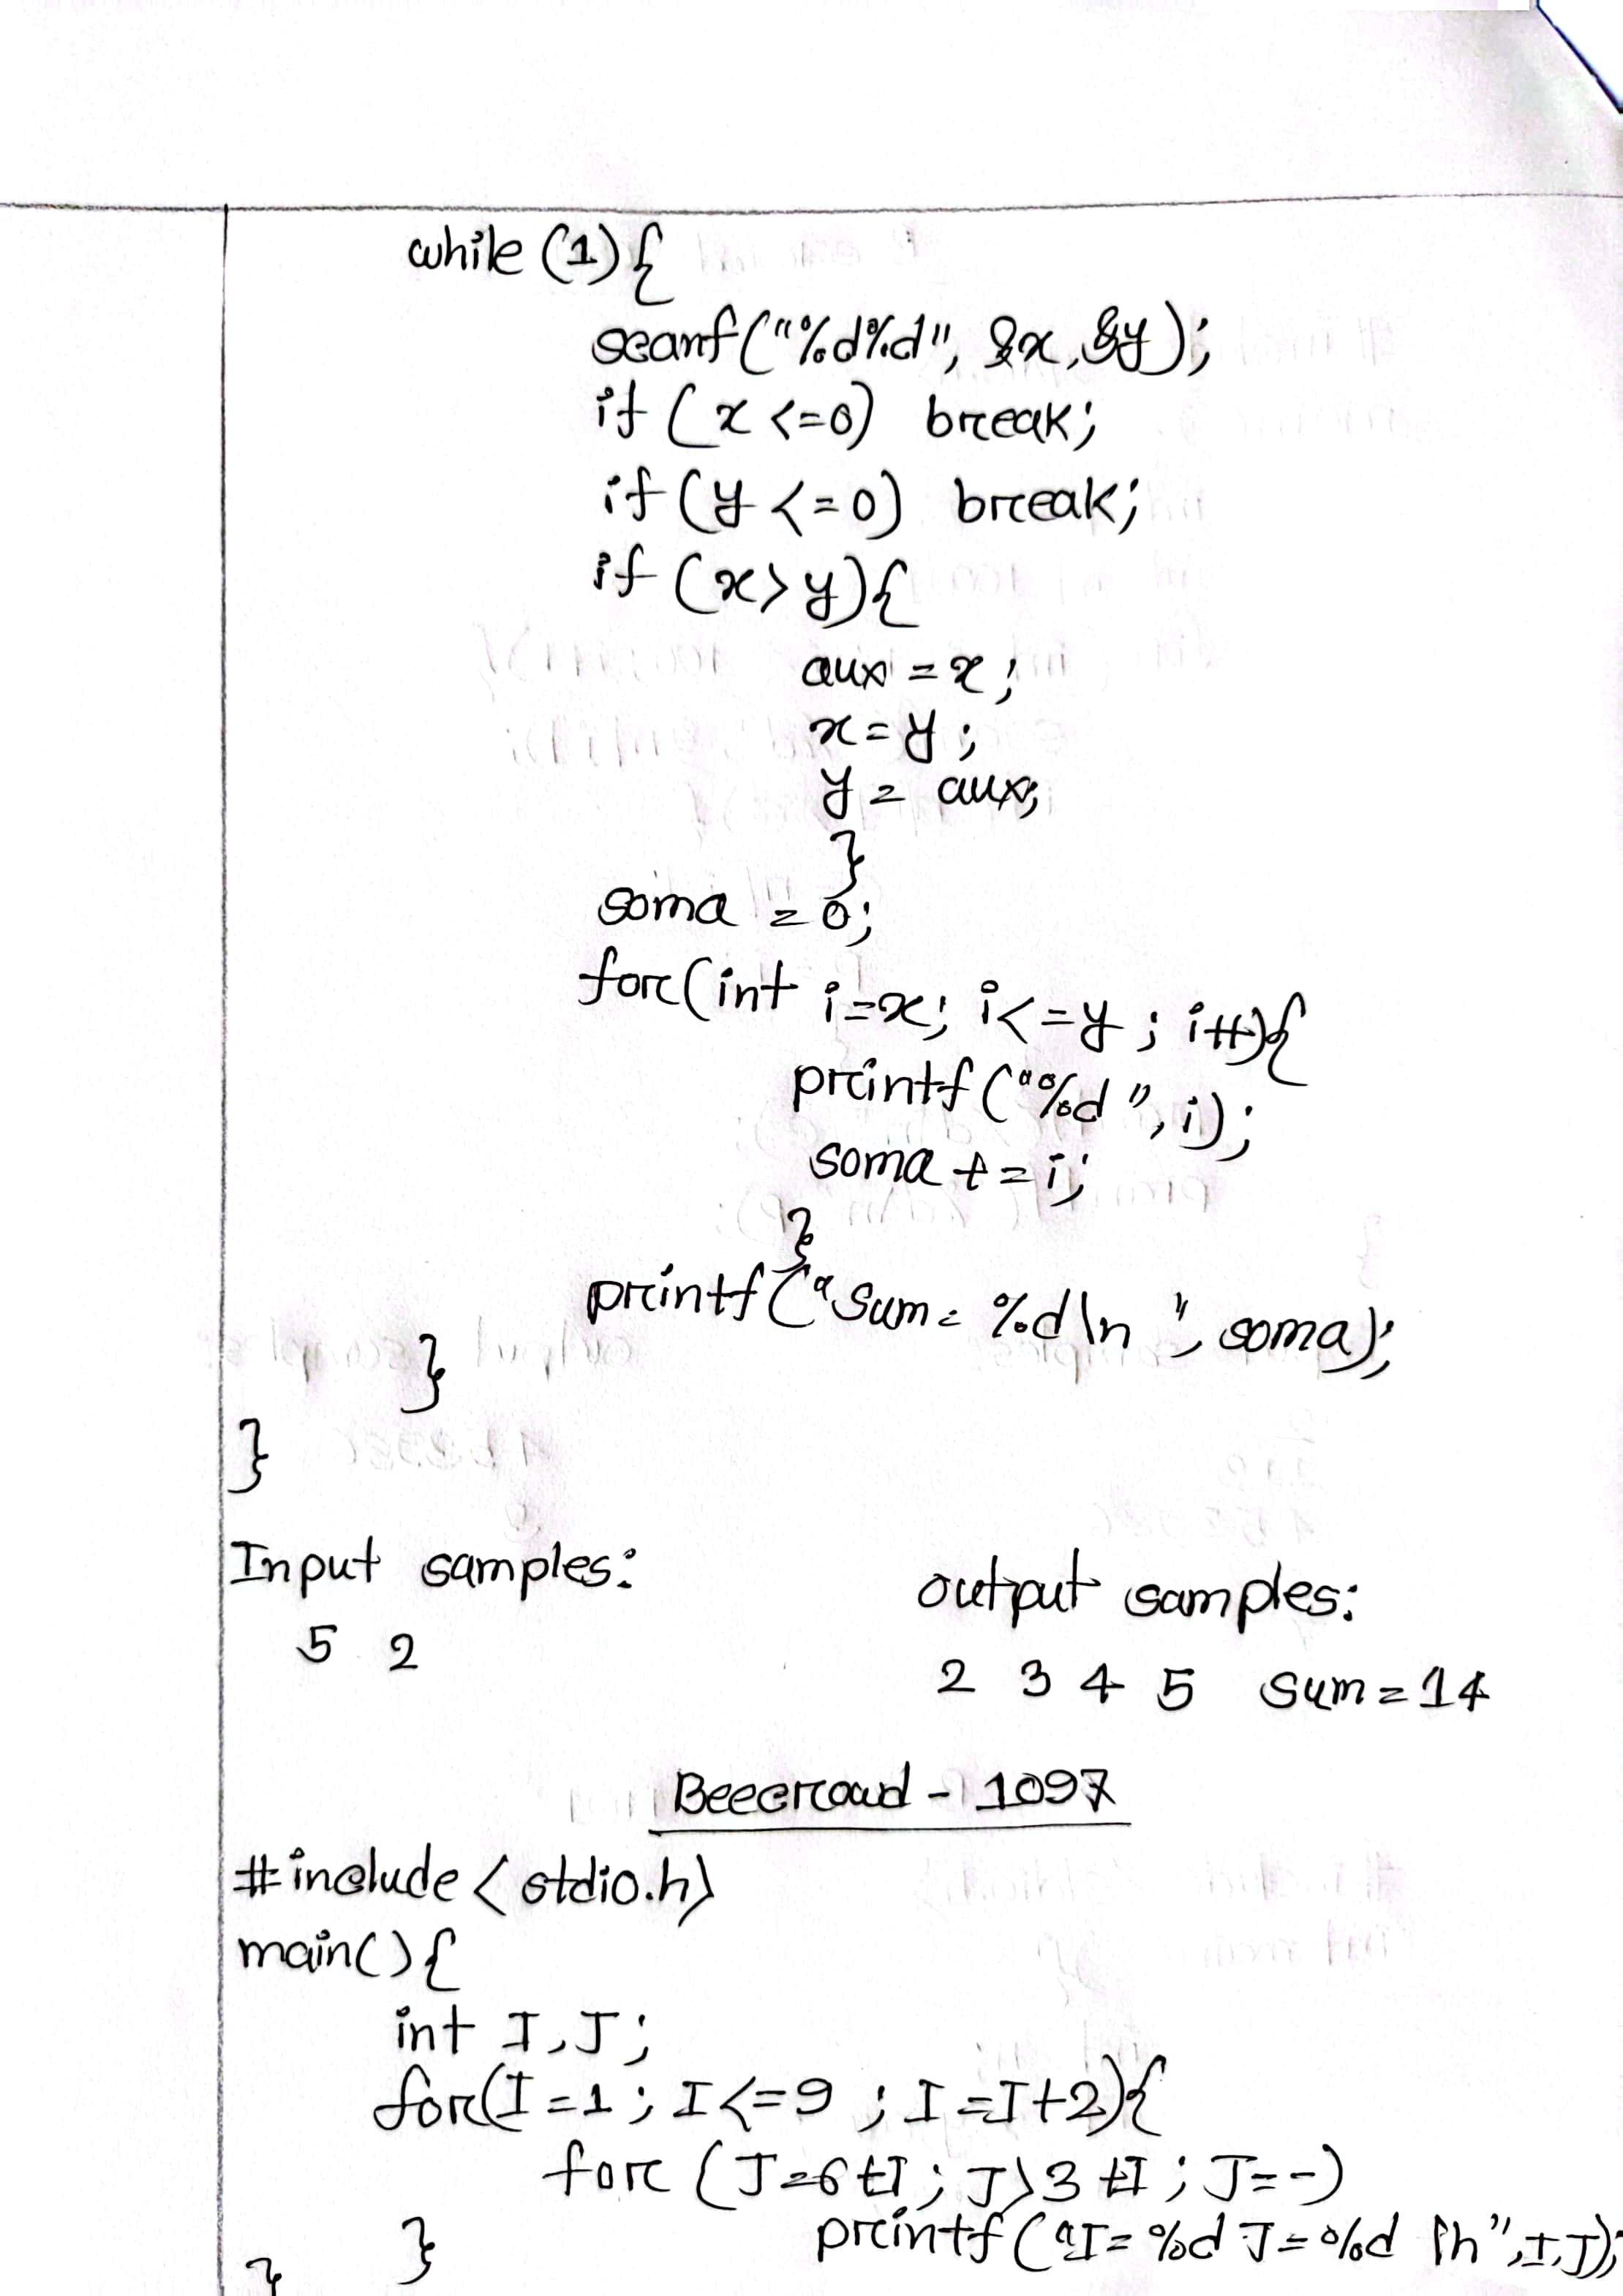 while (1){
scanf("%d%d", &x, &y);
if (x <=0) break;
if (y <=0) break;
if (x>y){
aux = x;
x=y;
y = aux;
}
soma = 0;
for(int i=x; i<=y; i++){
printf("%d ", i);
soma += i;
}
printf("Sum= %d\n ", soma);
}
}
Input samples: output samples:
5 2 2 3 4 5 Sum = 14
Beecrowd - 1097
#include <stdio.h>
main(){
int I, J;
for(I=1; I<=9; I=I+2){
for (J=6+I; J>3+I; J=-)
} printf("I=%d J=%d \n", I, J);
}